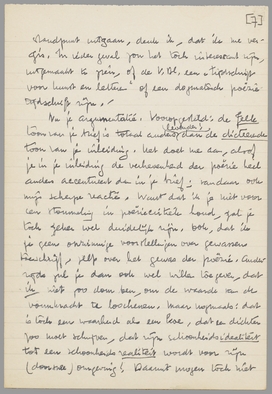 [7]
standpunt uitgaan, denk ik, dat ik me ver-
gis. In ieder geval zou het toch interessant zijn,
uitgemaakt te zien, of de V.Bl. een "tijdschrift
voor kunst en letteren" of een dogmatisch poëzie
tijdschrift zijn.
Nu je argumentatie. Vooropgesteld: de felle
toon van je brief is totaal anders dan de
toon van je inleiding. Het doet me aan, alsof
je in je inleiding de verhevenheid der poëzie heel
anders accentueert dan in je brief; vandaar ook
mijn scherpe reactie. Want dat ik je niet voor
een houd, zal je
toch zeker wel duidelijk zijn, ook, dat ik
je geen onzinnige voorstellingen over
, zelfs over het genre der poëzie.
zul je dan ook wel willen toegeven, dat
ik niet zoo dom ben, om de waarde van de
vormkracht te loochenen. Maar nogmaals: dat
is toch een waarheid als een koe, dat een dichter
zoo moet schrijven, dat zijn schoonheidsidealiteit
tot een schoonheidsrealiteit wordt voor zijn
omgeving! Daarmee mogen toch niet